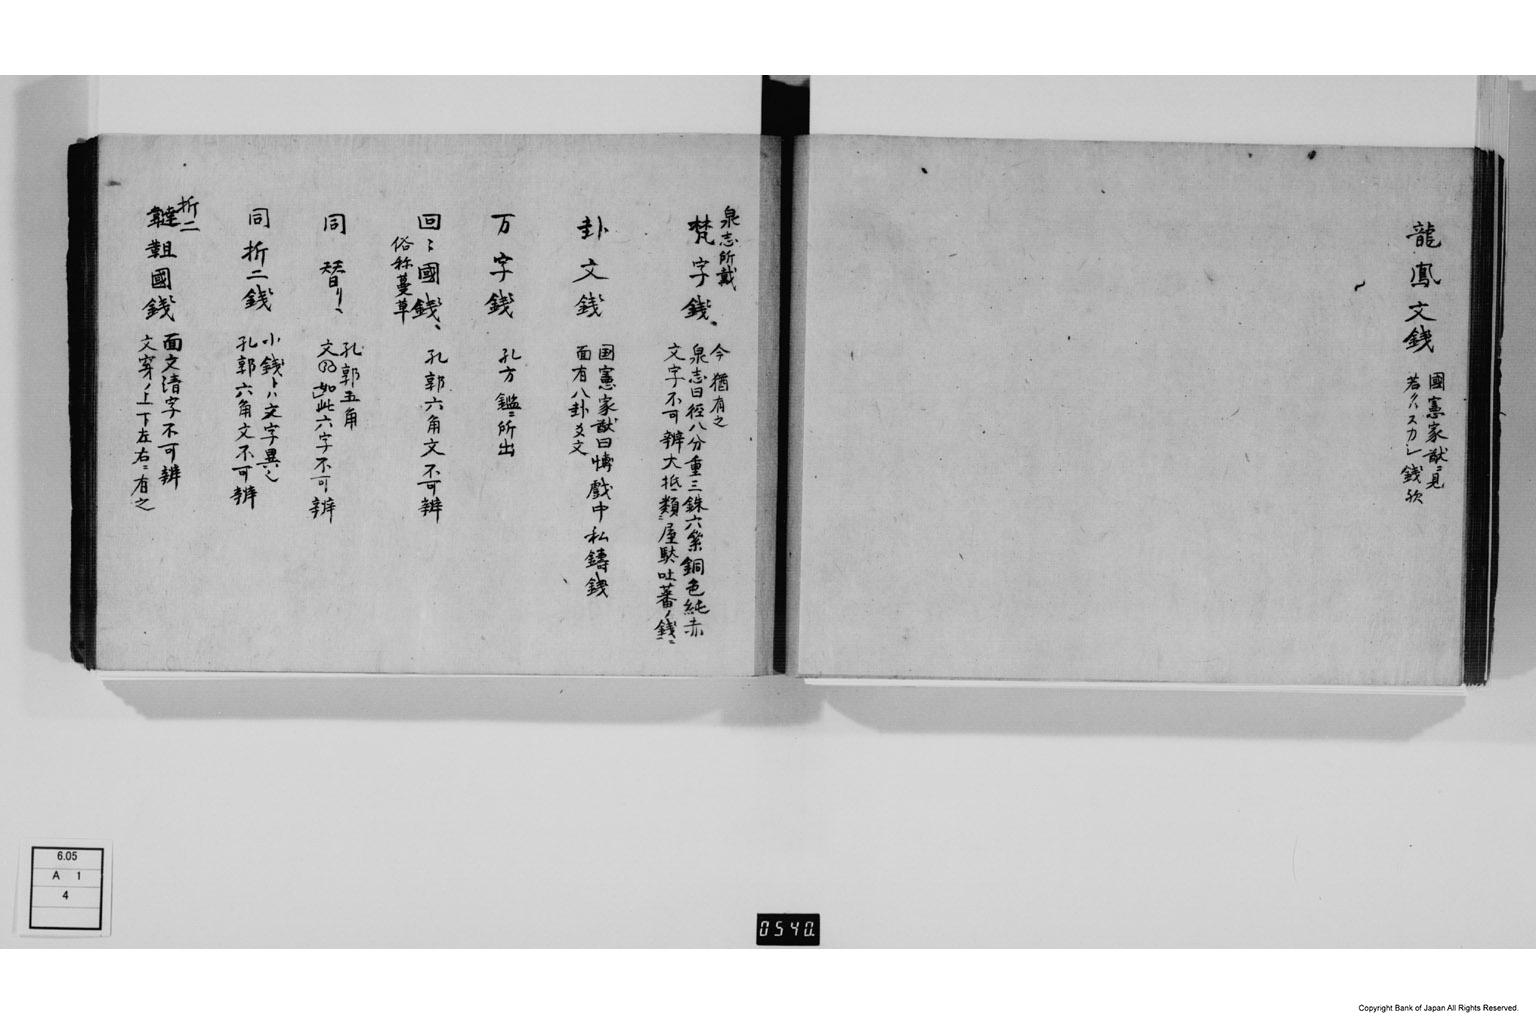 龍鳳文銭
國憲家猷ニ見
若クハスカシ銭欤
泉志所載
梵字銭
今猶有之
泉志曰径八分重三銖六絫銅色純赤
文字不可辨大抵類屋駄吐蕃ノ銭ニ
卦文銭
国憲家猷曰博戯中私鑄銭
面有八卦爻文
万字銭
孔方鑑ニ所出
回〻國銭
俗称蔓草
孔郭六角文不可辨
同 替リ
孔郭五角
文 如此六字不可辨
同折二銭
小銭トハ文字異也
孔郭六角文不可辨
折二
韃靼國銭
面文清字不可辨
文穿ノ上下左右ニ有之
6.05
A 1
4
0540.
Copyright Bank of Japan All Rights Reserved.